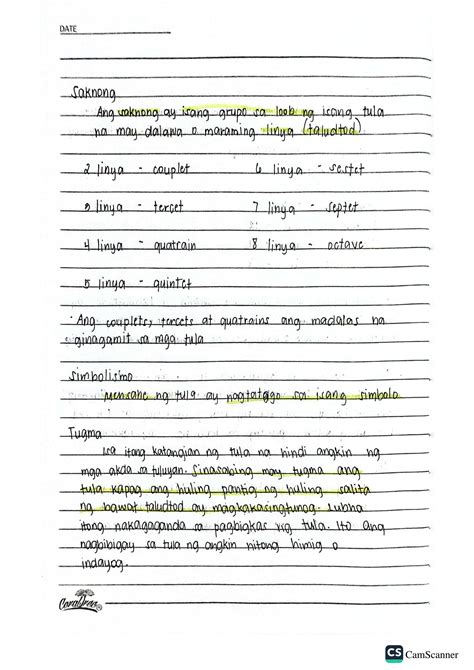 DATE
Saknong
Ang saknong ay isang grupo sa loob ng isang tula
na may dalawa o maraming linya (taludtod)
2 linya - couplet 6 linya - sestet
3 linya - tercet 7 linya - septet
4 linya - quatrain 8 linya - octave
5 linya - quintet
Ang couplets, tercets at quatrains ang madalas na
ginagamit sa mga tula
Simbolismo
Mensahe ng tula ay nagtatago sa isang simbolo
Tugma
Isa itong katangian ng tula na hindi angkin ng
mga akda sa tuluyan. Sinasabing may tugma ang
tula kapag ang huling pantig ng huling salita
ng bawat taludtod ay magkakasingtunog. Lubha
itong nakagaganda sa pagbigkas ng tula. Ito ang
nagbibigay sa tula ng angkin nitong himig o
indayog.
CS CamScanner